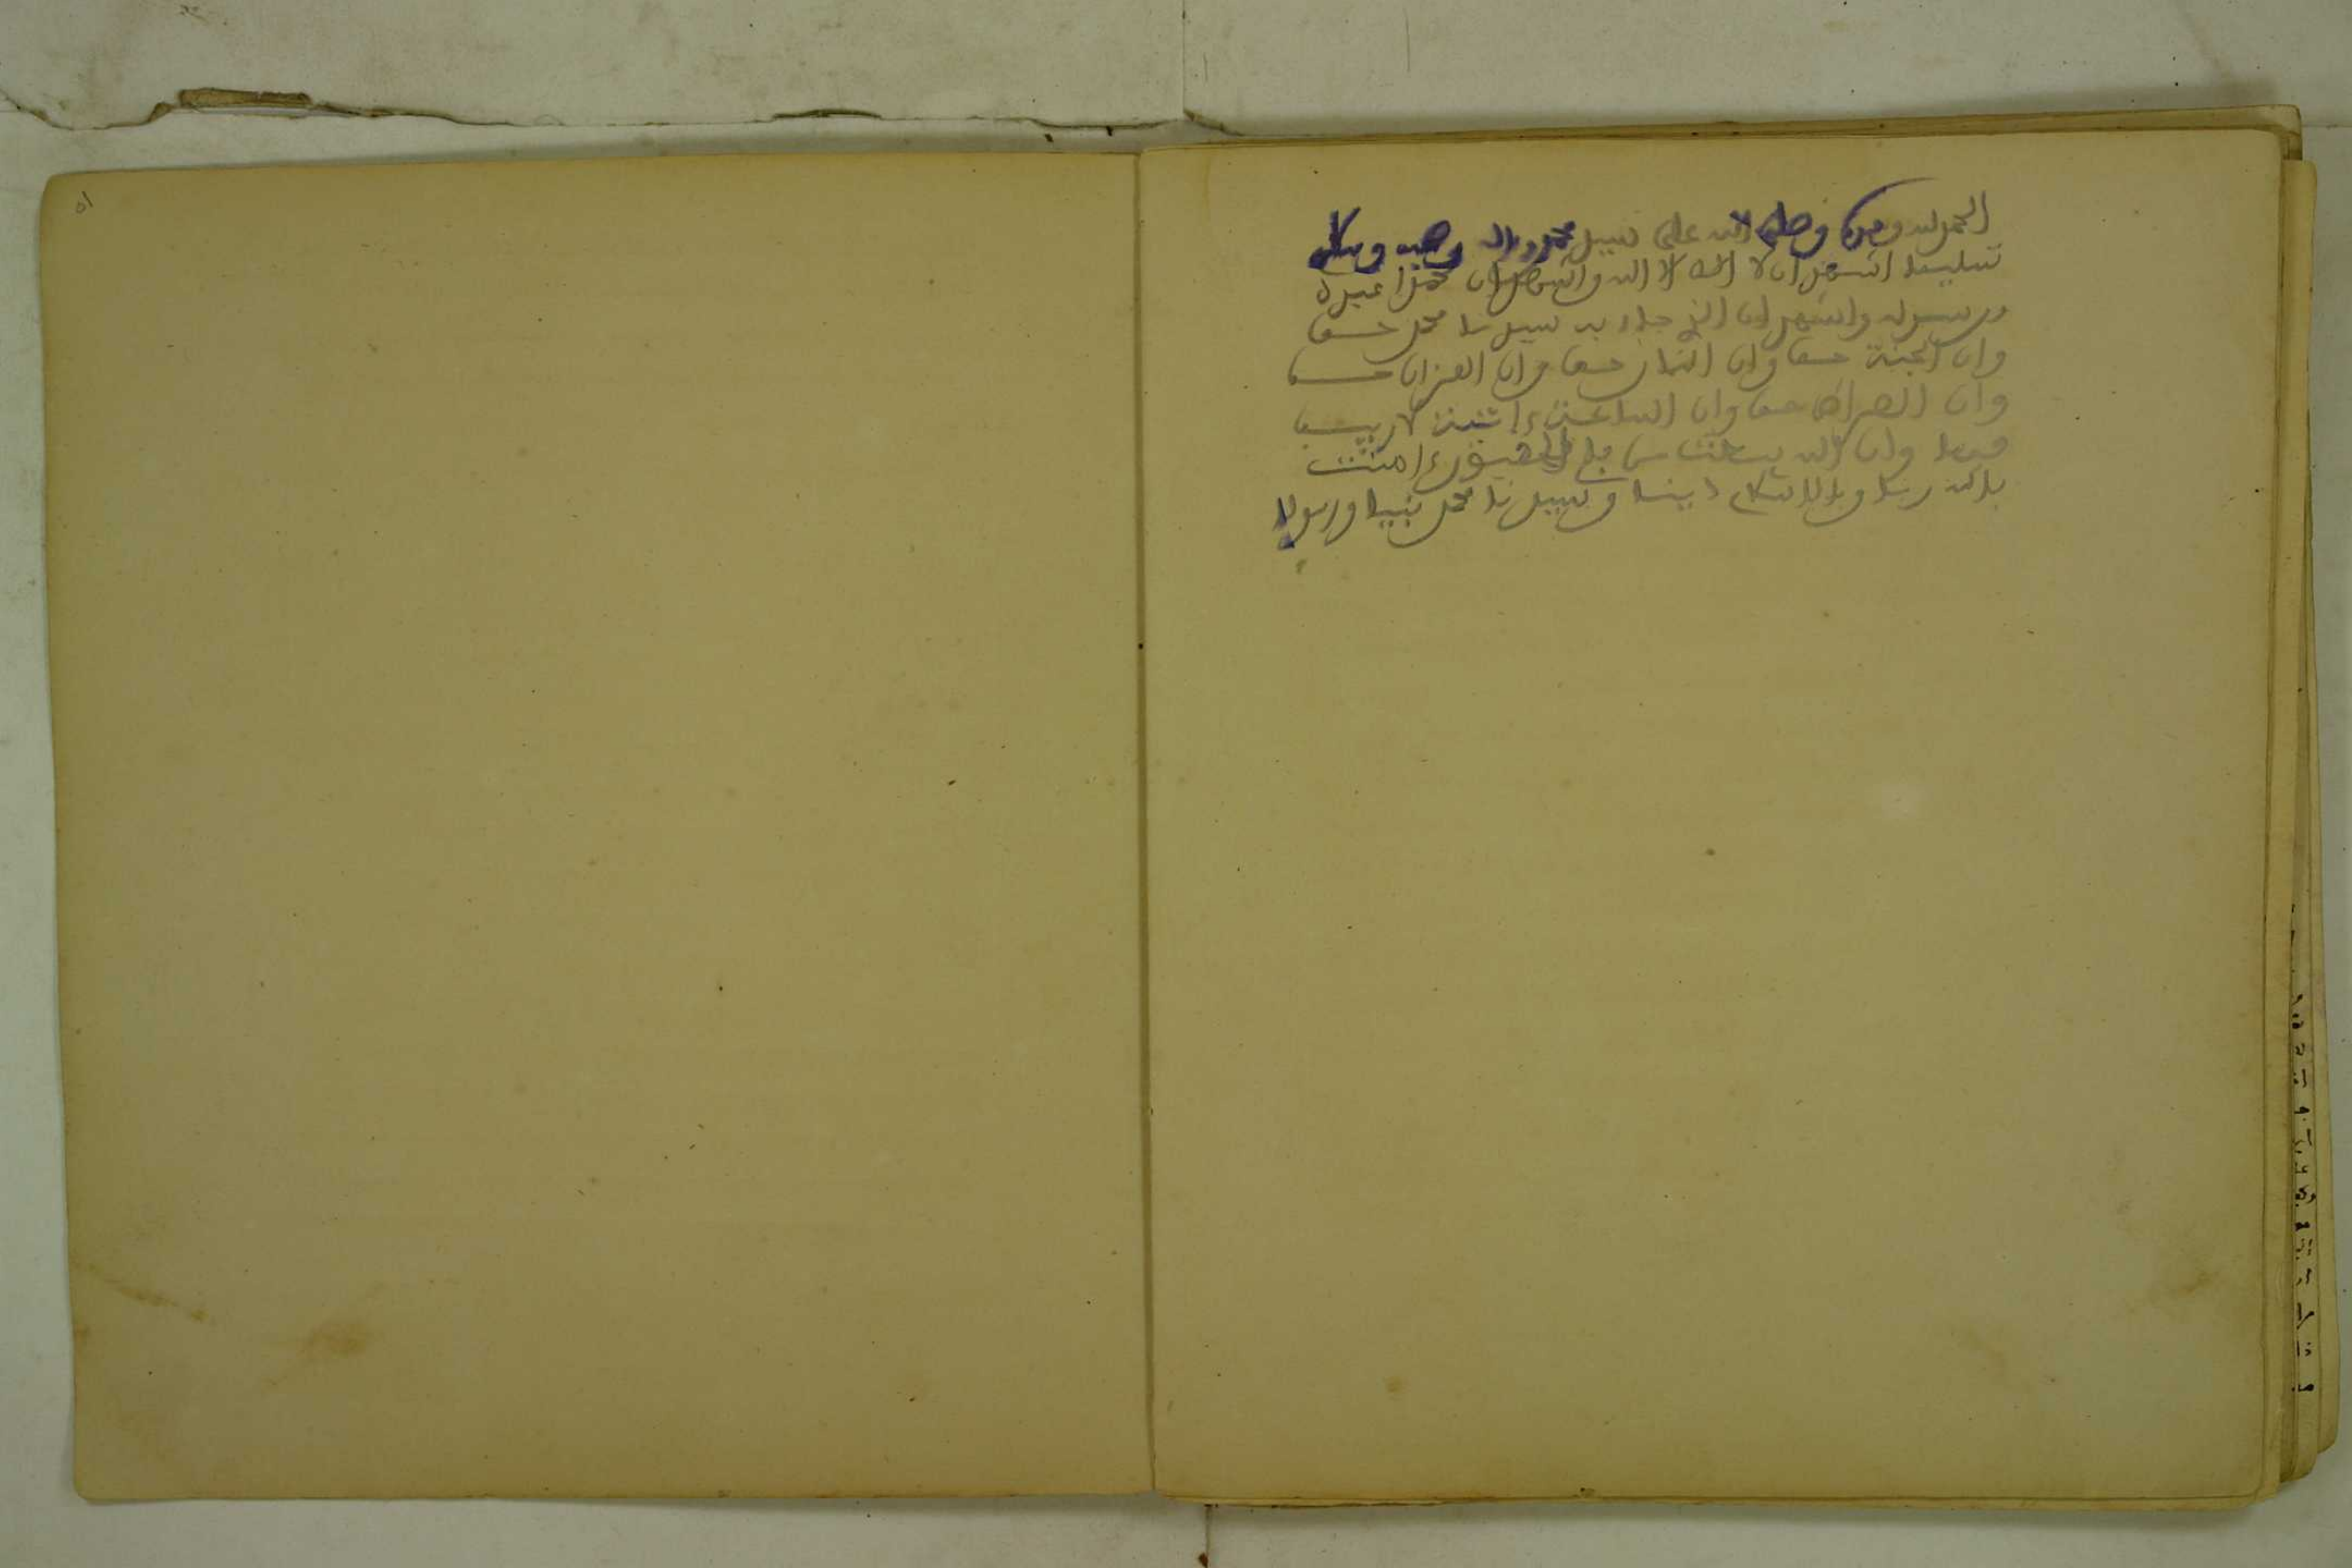 الحمد لله وحده وصلى الله على سيدنا محمد وءاله وصحبه وسلم
تسليما اشهد ان لا اله الا الله واشهد ان محمدا عبده
ورسوله واشهد ان الذي جاء به سيدنا محمد حق
وان الجنة حق وان النار حق وان الميزان حق
وان الصراط حق وان الساعة ءاتية لا ريب
فيها وان الله يبعث من في القبور ءامنت
بالله ربا وبالاسلام دينا وبسيدنا محمد نبيا ورسولا